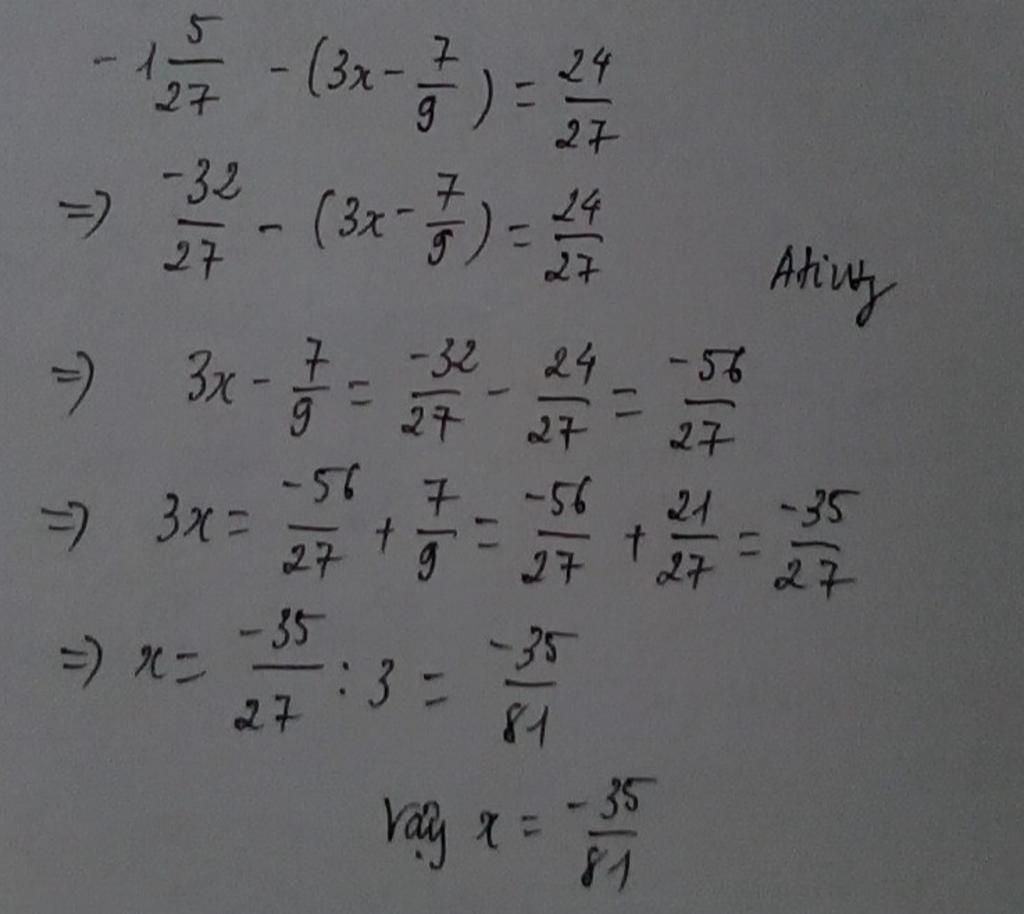 -1 5/27 - (3x - 7/9) = 24/27
=) -32/27 - (3x - 7/9) = 24/27
=) 3x - 7/9 = -32/27 - 24/27 = -56/27
=) 3x = -56/27 + 7/9 = -56/27 + 21/27 = -35/27
=) x = -35/27 : 3 = -35/81
Vậy x = -35/81